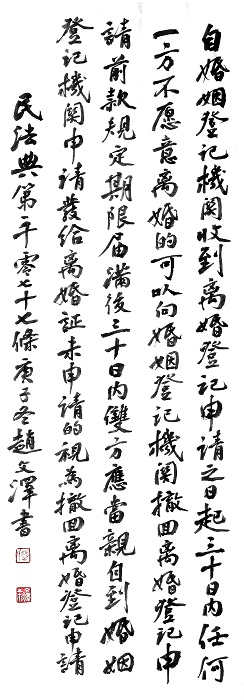 自婚姻登记機関收到离婚登记申請之日起三十日内任何
一方不愿意离婚的可以向婚姻登记機関撤回离婚登记申
請前款规定期限届满後三十日内雙方應當親自到婚姻
登记機関申請發给离婚証未申請的視為撤回离婚登记申請
民法典第一千零七十七條庚子冬趙文澤書